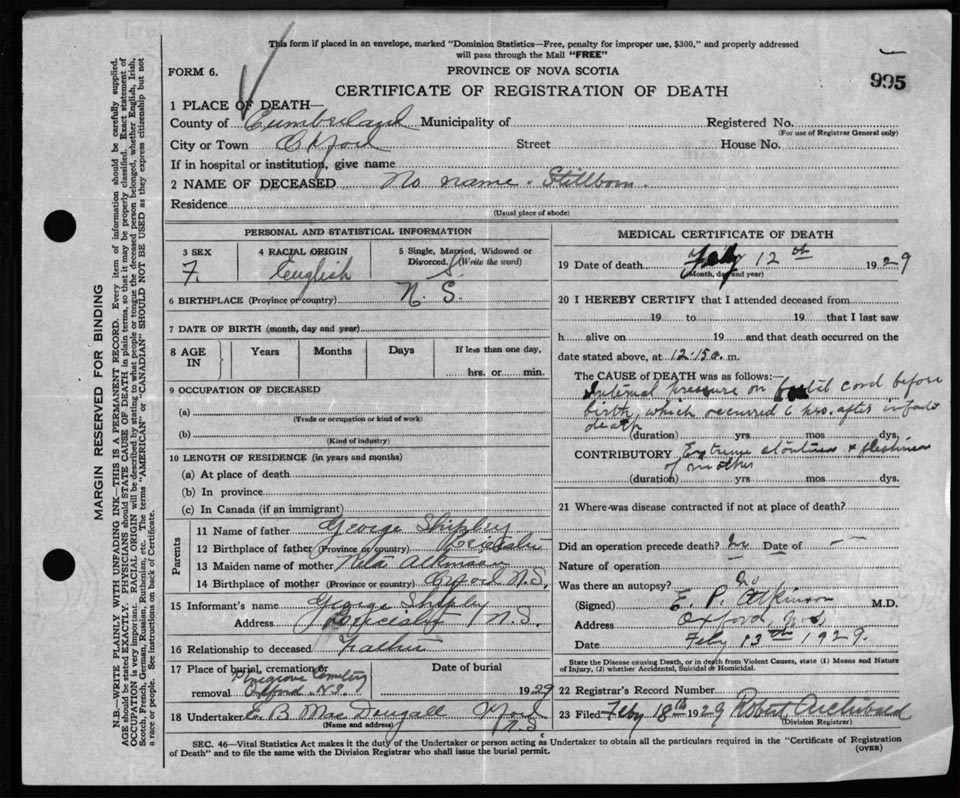 This form if placed in an envelope, marked "Dominion Statistics—Free, penalty for improper use, $300," and properly addressed
will pass through the Mail "FREE"
FORM 6.
PROVINCE OF NOVA SCOTIA
995
CERTIFICATE OF REGISTRATION OF DEATH
1 PLACE OF DEATH—
County of Cumberland Municipality of Registered No.
(For use of Registrar General only)
City or Town Oxford Street House No.
If in hospital or institution, give name
2 NAME OF DECEASED No name. Stillborn.
Residence
(Usual place of abode)
PERSONAL AND STATISTICAL INFORMATION
3 SEX F. 4 RACIAL ORIGIN English 5 Single, Married, Widowed or Divorced. (Write the word) S.
6 BIRTHPLACE (Province or country) N. S.
7 DATE OF BIRTH (month, day and year)
8 AGE IN Years Months Days If less than one day,
hrs. or min.
9 OCCUPATION OF DECEASED
(a)
(Trade or occupation or kind of work)
(b)
(Kind of industry)
10 LENGTH OF RESIDENCE (in years and months)
(a) At place of death
(b) In province
(c) In Canada (if an immigrant)
Parents
11 Name of father George Shipley
12 Birthplace of father (Province or country) Leicester
13 Maiden name of mother Atkinson
14 Birthplace of mother (Province or country) Oxford N.S.
15 Informant's name George Shipley
Address Leicester N.S.
16 Relationship to deceased Father
17 Place of burial, cremation or removal Pinegrove Cemetery Oxford N.S. Date of burial 1929
18 Undertaker E. B. MacDougall Oxford N.S.
(Name and address)
MEDICAL CERTIFICATE OF DEATH
19 Date of death Feby 12th 1929
(Month, day and year)
20 I HEREBY CERTIFY that I attended deceased from
19 to 19 that I last saw
h alive on 19 and that death occurred on the
date stated above, at 12.15 a. m.
The CAUSE OF DEATH was as follows:—
Internal pressure on foetal cord before
birth, which occurred 6 hrs. after infants
death
(duration) yrs. mos. dys.
CONTRIBUTORY Extreme stoutness & fleshiness
of mother
(duration) yrs. mos. dys.
21 Where was disease contracted if not at place of death?
Did an operation precede death? no Date of —
Nature of operation —
Was there an autopsy? no
(Signed) E. P. Atkinson M.D.
Address Oxford, N.S.
Date Feby 13th 1929.
State the Disease causing Death, or in death from Violent Causes, state (1) Means and Nature
of Injury, (2) whether Accidental, Suicidal or Homicidal.
22 Registrar's Record Number
23 Filed Feby 18th 1929 Robert Archibald
(Division Registrar)
SEC. 46—Vital Statistics Act makes it the duty of the Undertaker or person acting as Undertaker to obtain all the particulars required in the "Certificate of Registration
of Death" and to file the same with the Division Registrar who shall issue the burial permit.
(OVER)
MARGIN RESERVED FOR BINDING
N.B.—WRITE PLAINLY WITH UNFADING INK—THIS IS A PERMANENT RECORD. Every item of information should be carefully supplied.
AGE should be stated EXACTLY. PHYSICIANS should STATE CAUSE OF DEATH in plain terms, so that it may be properly classified. Exact statement of
OCCUPATION is very important. RACIAL ORIGIN will be described by stating to what people or tongue the deceased person belonged, whether English, Irish,
Scotch, French, German, Russian, Ruthenian, etc. The terms "AMERICAN" or "CANADIAN" SHOULD NOT BE USED as they express citizenship but not
a race or people. See instructions on back of Certificate.